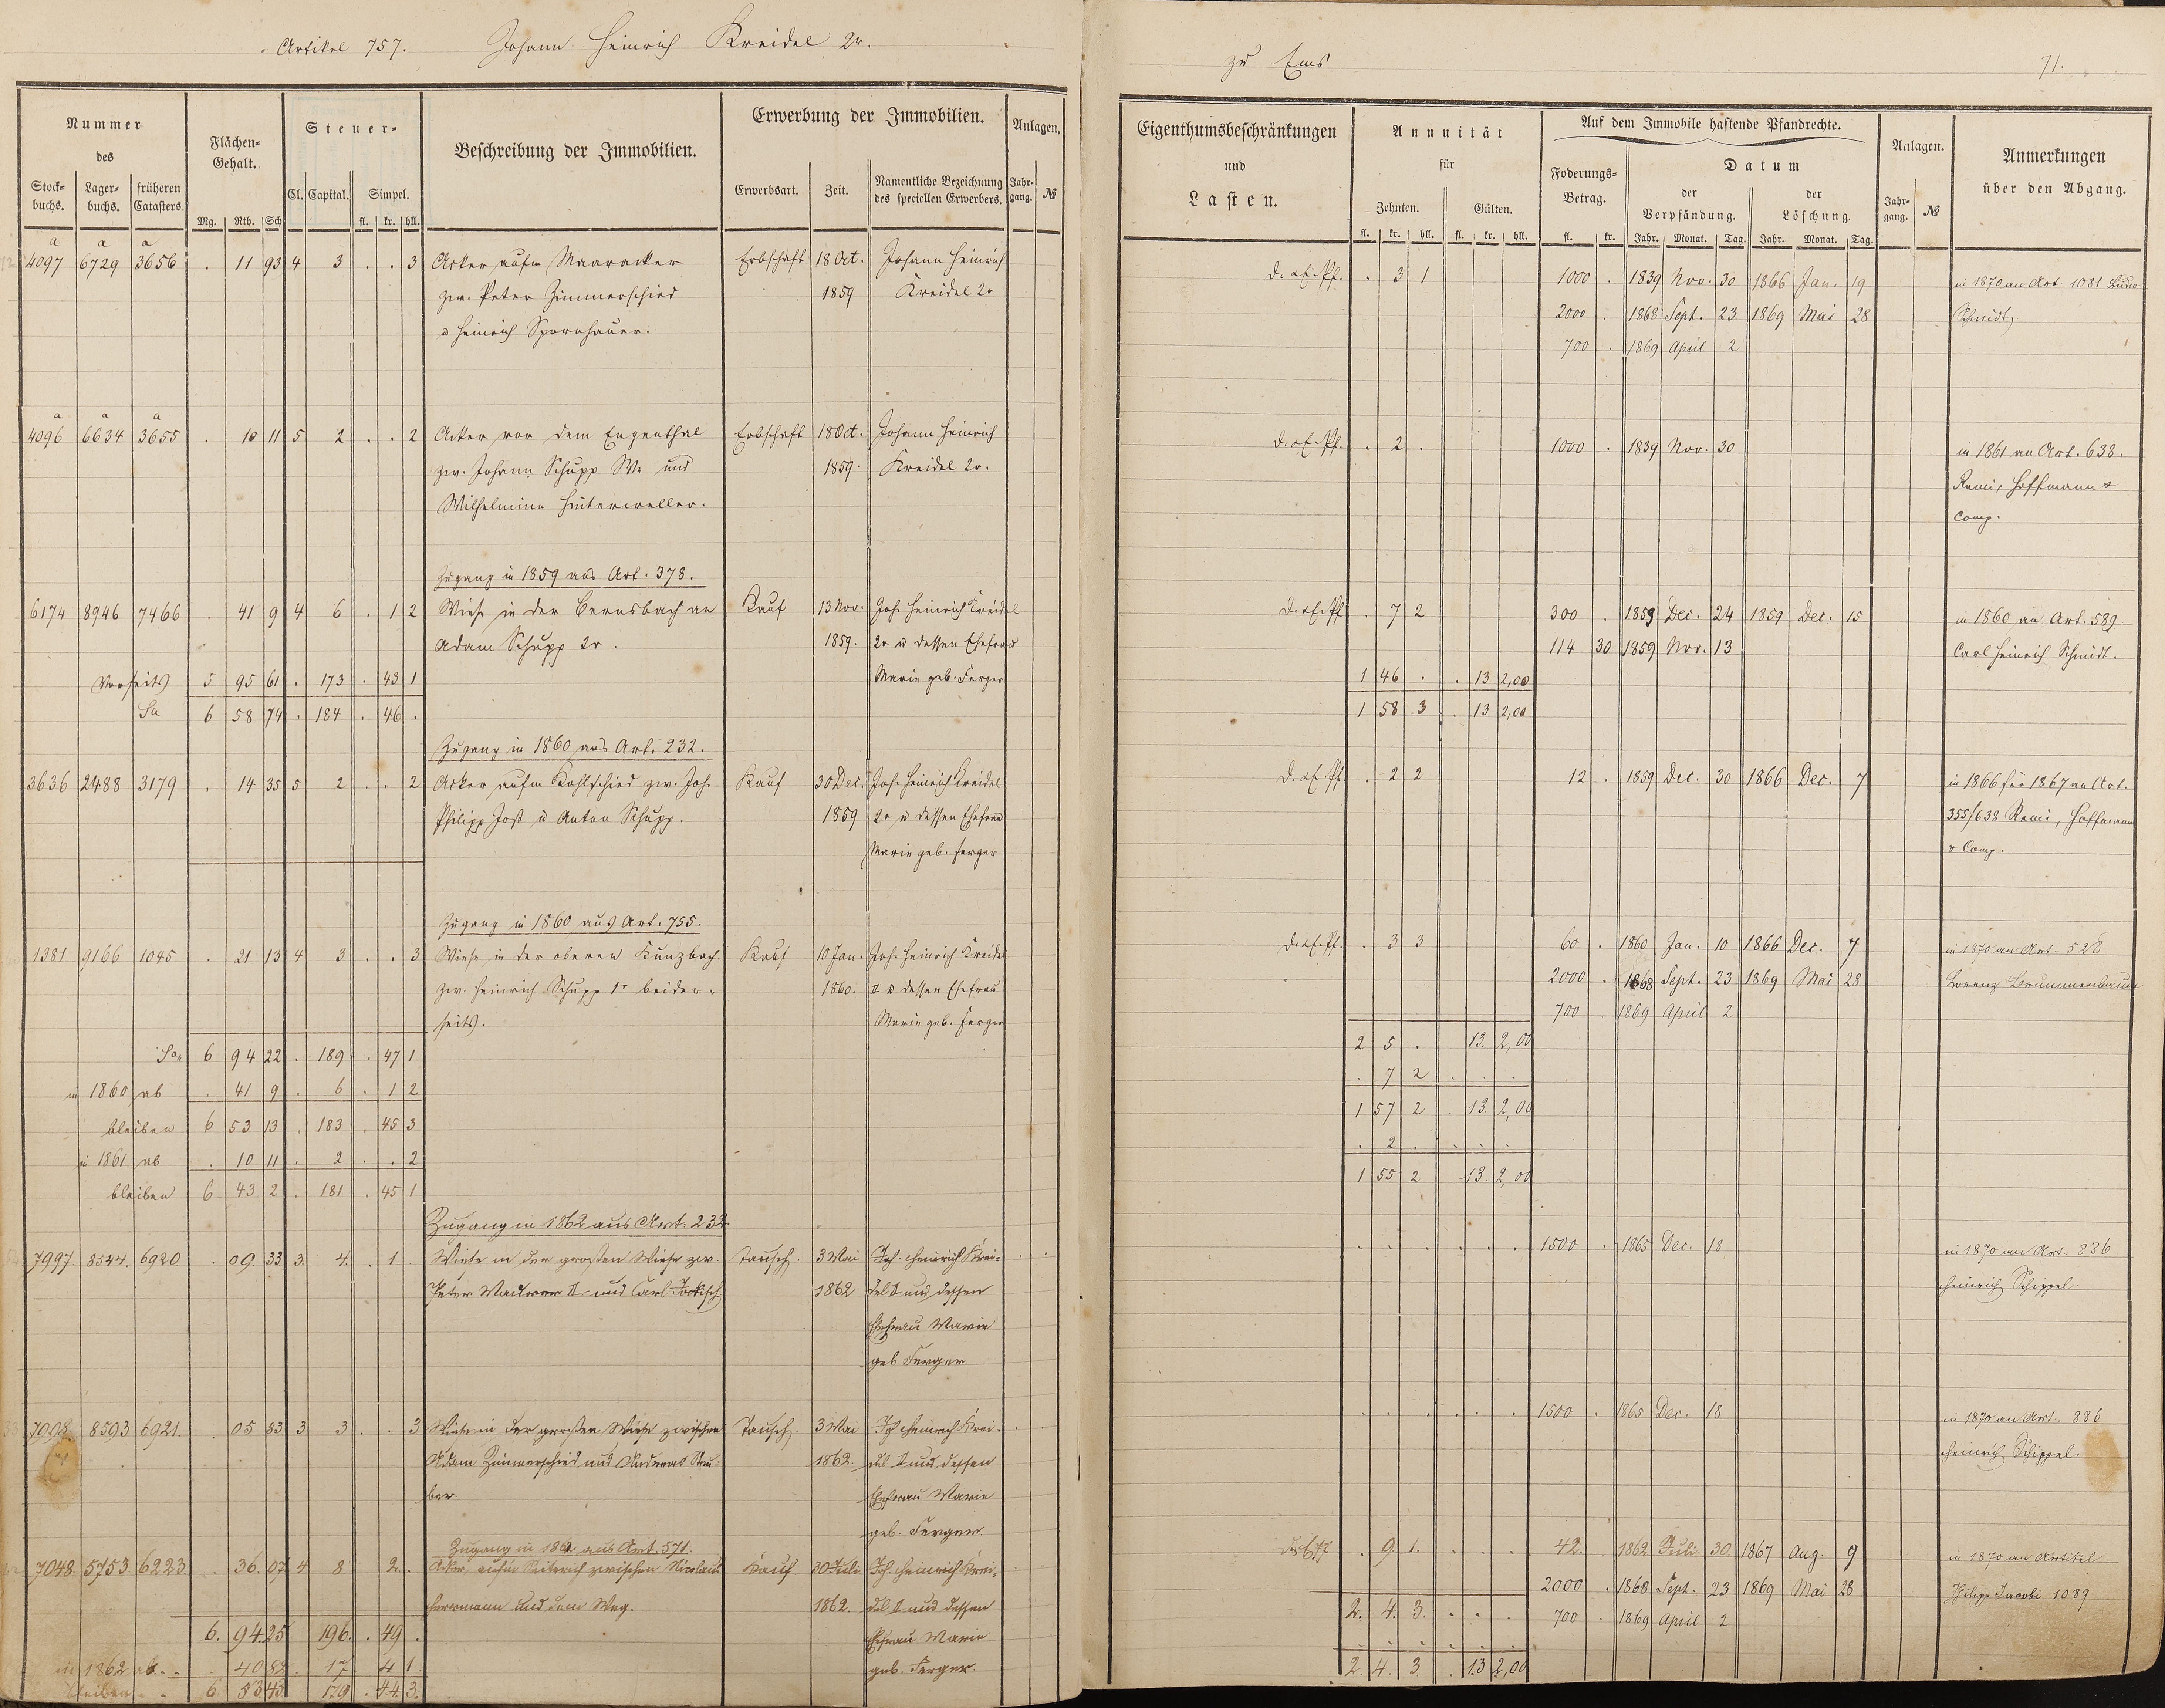 Artikel 757. Johann Heinrich Kreidel 2r.
zu Ems 71.
Nummer des
Stock-buchs. Lager-buchs. früheren Catasters.
Flächen-Gehalt.
Mg. Rth. Sch
Steuer-
Cl. Capital. Simpel.
fl. kr. hll.
Beschreibung der Immobilien.
Erwerbung der Immobilien.
Erwerbsart. Zeit. Namentliche Bezeichnung des speciellen Erwerbers.
Anlagen.
Jahr-gang. №
Eigenthumsbeschränkungen und Lasten.
Annuität für
Zehnten. Gülten.
fl. kr. hll. fl. kr. hll.
Auf dem Immobile haftende Pfandrechte.
Foderungs-Betrag.
fl. kr.
Datum
der Verpfändung. der Löschung.
Jahr. Monat. Tag. Jahr. Monat. Tag.
Anlagen.
Jahr-gang. №
Anmerkungen über den Abgang.
a a a
4097 6729 3656 . 11 93 4 3 . . 3 Acker aufm Maaracker Erbschaft 18 Oct. Johann Heinrich
zw. Peter Zimmerschied 1859 Kreidel 2r
u Heinrich Spornhauer.
d. . 3 1 1000 . 1839 Nov. 30 1866 Jan. 19 in 1870 an Art 1081
2000 . 1868 Sept. 23 1869 Mai 28 Schmidt
700 . 1869 April 2
a a a
4096 6634 3655 . 10 11 5 2 . . 2 Acker vor dem Engenthal Erbschaft 18 Oct. Johann Heinrich
zw. Johann Schupp We und 1859. Kreidel 2r.
Wilhelmine Hinterweller.
d. . 2 . 1000 . 1839 Nov. 30 in 1861 an Art. 638.
Remi, Hoffmann &
Comp.
Zugang in 1859 aus Art. 378.
6174 8946 7466 . 41 9 4 6 . 1 2 Wiese in der Bernsbach an Kauf 13 Nov. Joh. Heinrich Kreidel
Adam Schupp 2r. 1859. 2r u dessen Ehefrau
Marie geb. Ferger
d. . 7 2 300 . 1859 Dec. 24 1859 Dec. 15 in 1860 an Art. 589
114 30 1859 Nov. 13 Carl Heinrich Schmidt.
Vorseits 5 95 61 . 173 . 43 1
1 46 . . 13 2,00
Sa 6 58 74 . 184 . 46 .
1 58 3 . 13 2,00
Zugang in 1860 aus Art. 232.
3636 2488 3179 . 14 35 5 2 . . 2 Acker aufm Kohlschied zw. Joh. Kauf 30 Dec. Joh. Heinrich Kreidel
Philipp Jost u Anton Schupp. 1859 2r u dessen Ehefrau
Marie geb. Ferger
d. . 2 2 12 . 1859 Dec. 30 1866 Dec. 7 in 1866 für 1867 an Art.
355/638 Remi, Hoffmann
& Comp.
Zugang in 1860 aus Art. 755.
1381 9166 1045 . 21 13 4 3 . . 3 Wiese in der oberen Kunzbach Kauf 10 Jan. Joh. Heinrich Kreidel
zw. Heinrich Schupp 1r beider- 1860. II u dessen Ehefrau
seits. Marie geb. Ferger
d. . 3 3 60 . 1860 Jan. 10 1866 Dec. 7 in 1870 an Art 528
2000 . 1868 Sept. 23 1869 Mai 28 Lorenz
700 . 1869 April 2
Sa. 6 94 22 . 189 . 47 1
2 5 . 13. 2,00
in 1860 ab . 41 9 . 6 . 1 2
. 7 2 . . .
bleiben 6 53 13 . 183 . 45 3
1 57 2 . 13. 2,00
in 1861 ab . 10 11 . 2 . . 2
. 2 . . . .
bleiben 6 43 2 . 181 . 45 1
1 55 2 13. 2,00
Zugang in 1862 aus Art. 232.
7997. 8544. 6920 . 09 33 3. 4. . 1 . Wiese in der großen Wiese zw. Tausch. 3 Mai Joh. Heinrich Krei-
Peter Maurer II und Carl 1862 del II und dessen
Ehefrau Marie
geb Ferger
1500 . 1865 Dec. 18 in 1870 an Art. 886
Heinrich Schippel.
7998. 8593 6921. . 05 83 3 3 . . 3 Wiese in der großen Wiese zwischen Tausch. 3 Mai Joh Heinrich Krei-
Adam Zimmerschied und Andreas 1862. del II und dessen
ber. Ehefrau Marie
geb. Ferger.
1500 . 1865 Dec. 18 in 1870 an Art. 886
Heinrich Schippel.
Zugang in 1862 aus Art. 571.
7048 5753 6223 . 36. 07 4 8 2. . Acker zwischen Nicolaus Kauf 30 Juli Joh. Heinrich Krei-
Herrmann und dem Weg. 1862. del II und dessen
Ehefrau Marie
geb. Ferger.
. 9 1. 42. . 1862 Juli 30 1867 Aug. 9 in 1870 an Artikel
2000 . 1868 Sept. 23 1869 Mai 28 1089
700 . 1869 April 2
6. 94. 25 196. . 49 .
2. 4. 3. . . .
in 1862 ab . . 40 82 . 17 4 1.
bleiben . . 6 53 43 179 . 44. 3.
2. 4. 3. . 13 2,00